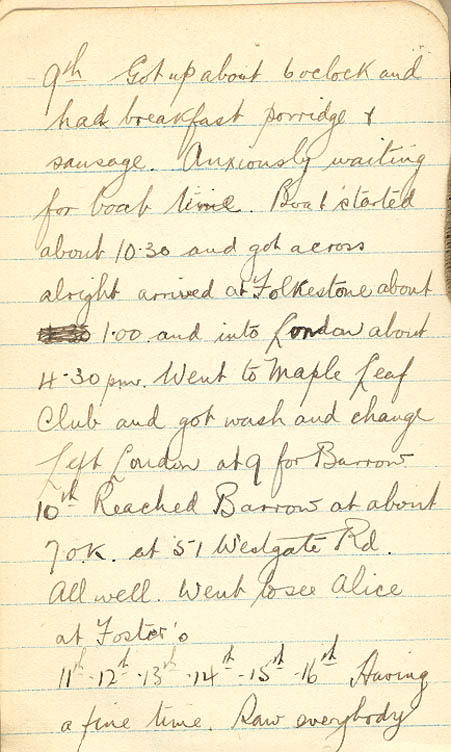 9th Got up about 6 oclock and
had breakfast porridge &
sausage. Anxiously waiting
for boat time. Boat started
about 10.30 and got across
alright arrived at Folkestone about
1.00 and into London about
4.30 pm. Went to Maple Leaf
Club and got wash and change
Left London at 9 for Barrow
10th Reached Barrow at about
7 o.k. at 51 Westgate Rd.
All well. Went to see Alice
at Foster's
11th - 12th - 13th - 14th - 15th - 16th Having
a fine time. Saw everybody